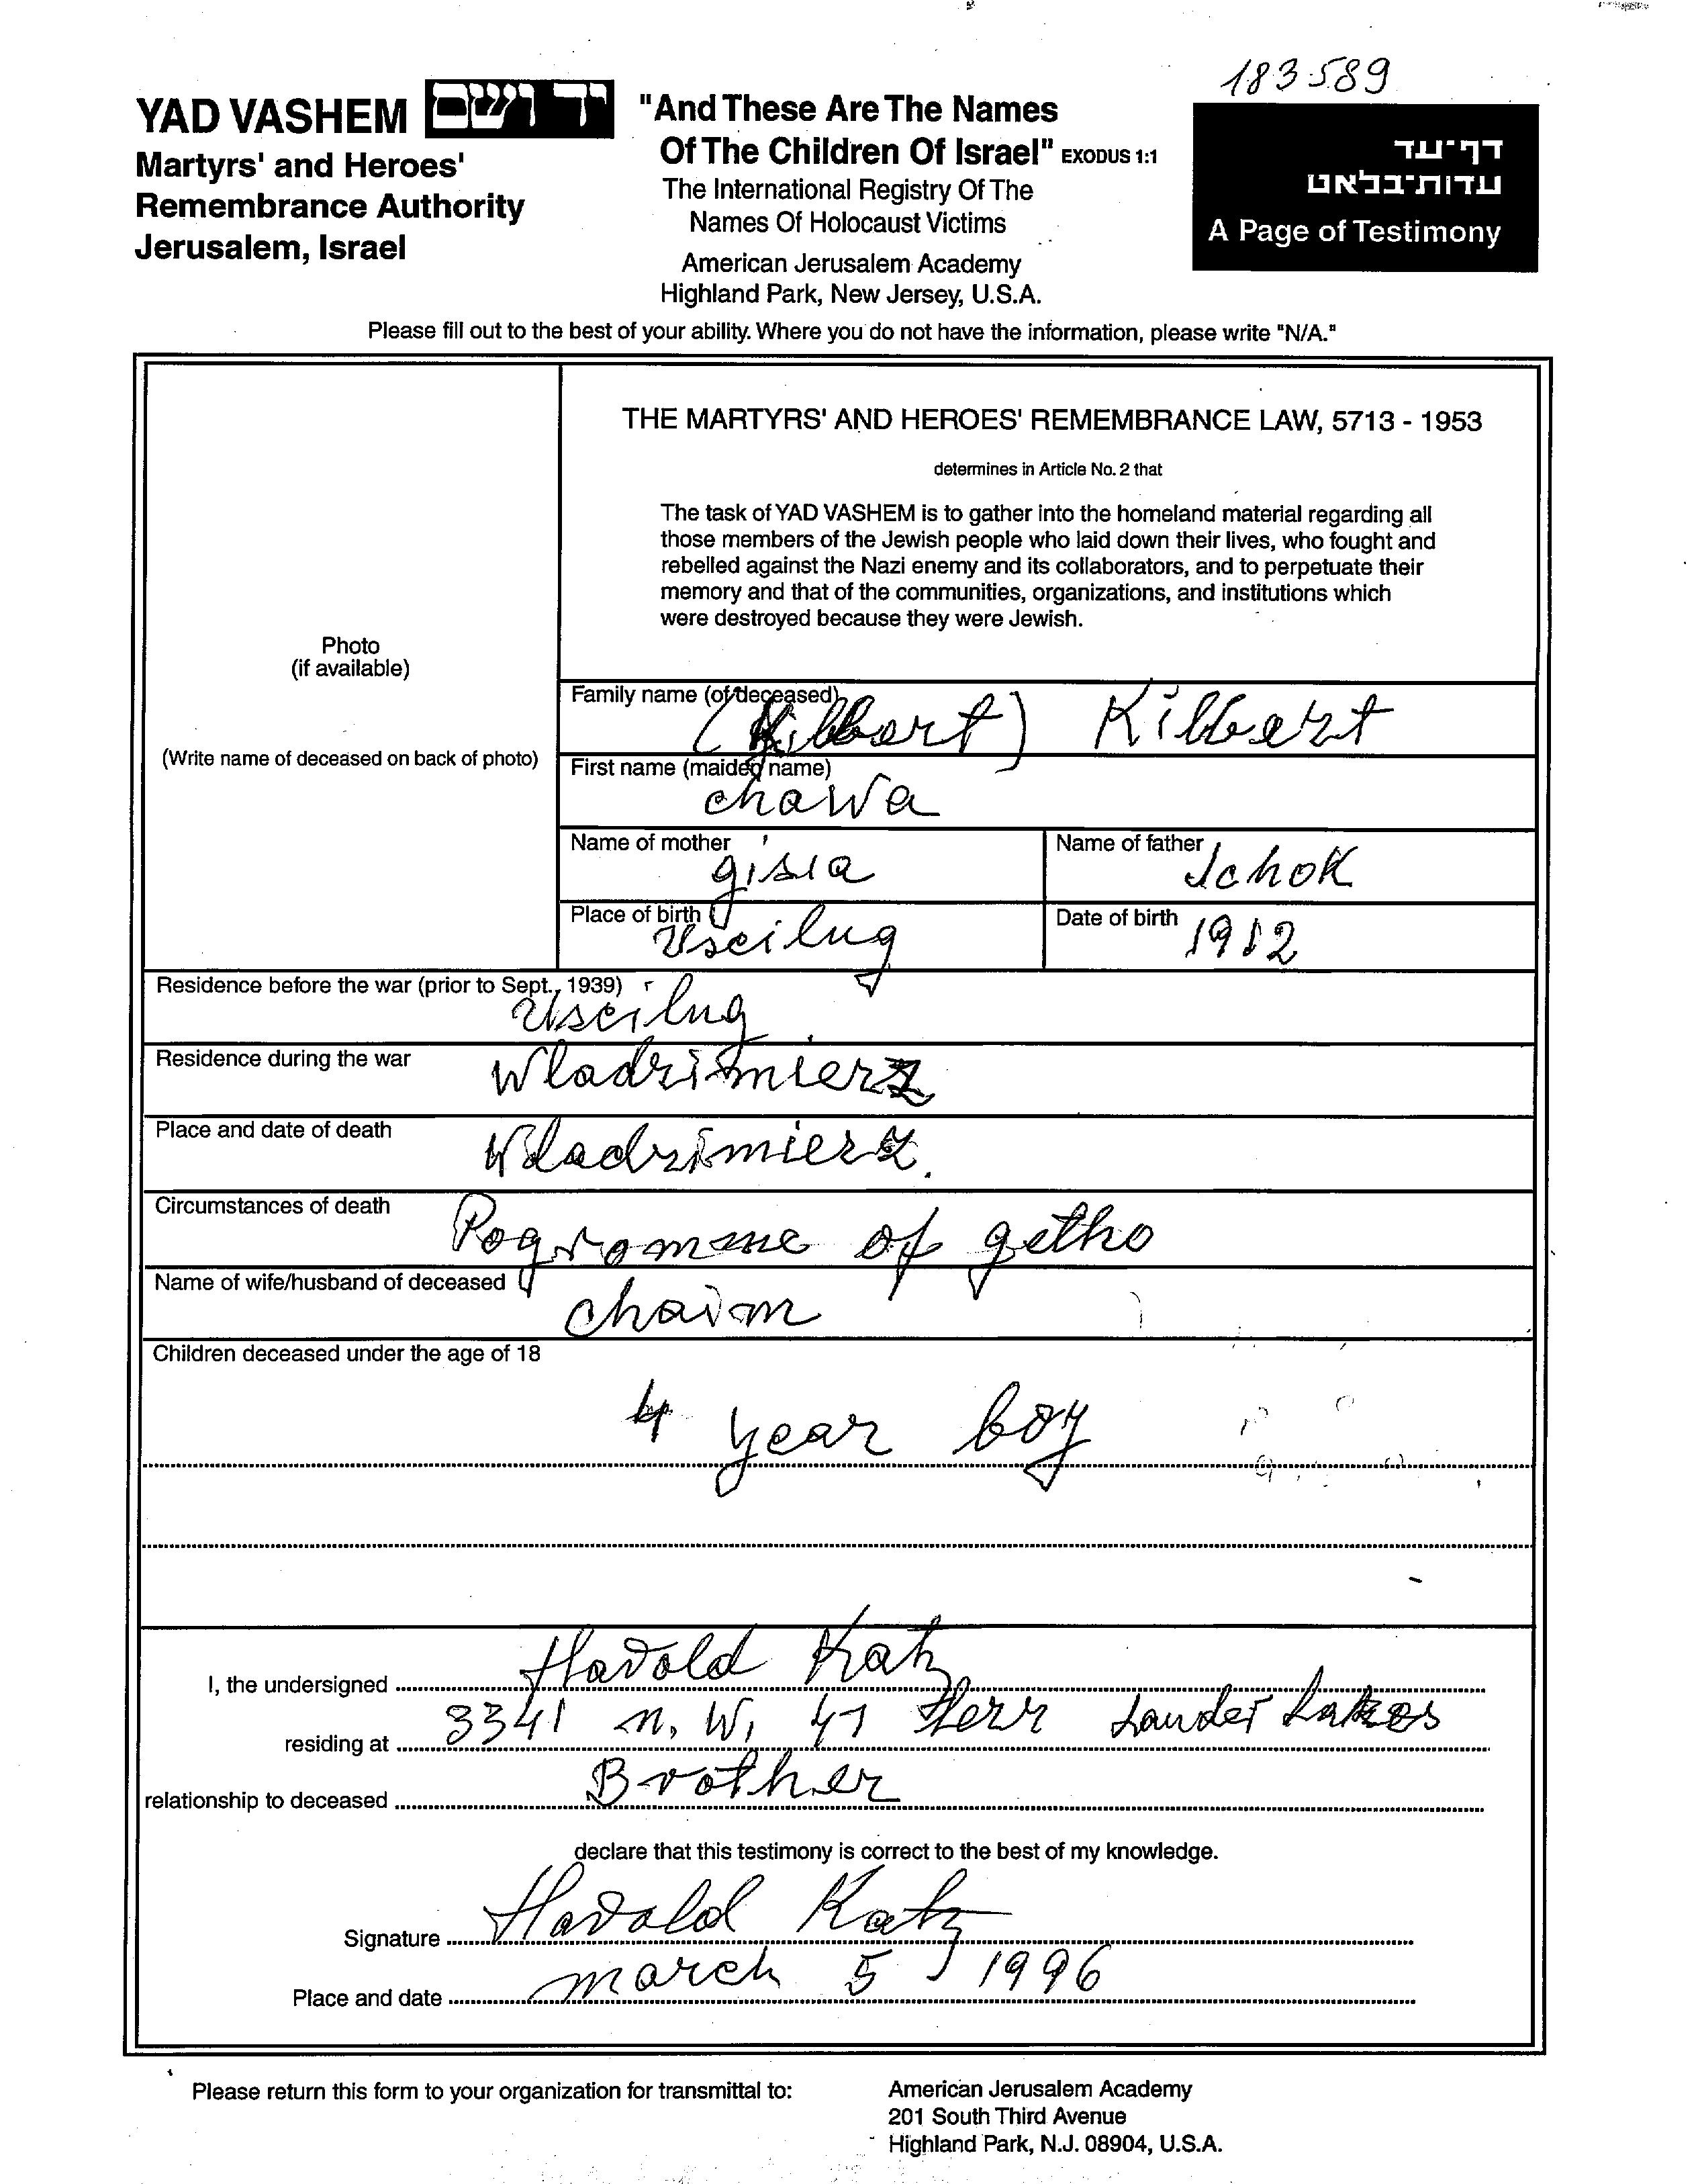 183589
YAD VASHEM יד ושם
Martyrs' and Heroes'
Remembrance Authority
Jerusalem, Israel
"And These Are The Names
Of The Children Of Israel" EXODUS 1:1
The International Registry Of The
Names Of Holocaust Victims
American Jerusalem Academy
Highland Park, New Jersey, U.S.A.
דף-עד
עדות-בלאט
A Page of Testimony
Please fill out to the best of your ability. Where you do not have the information, please write "N/A."
Photo
(if available)
(Write name of deceased on back of photo)
THE MARTYRS' AND HEROES' REMEMBRANCE LAW, 5713 - 1953
determines in Article No. 2 that
The task of YAD VASHEM is to gather into the homeland material regarding all
those members of the Jewish people who laid down their lives, who fought and
rebelled against the Nazi enemy and its collaborators, and to perpetuate their
memory and that of the communities, organizations, and institutions which
were destroyed because they were Jewish.
Family name (of deceased) (Kilbart) Kilbert
First name (maiden name) chawa
Name of mother gisia
Name of father Ichok
Place of birth Uscilug
Date of birth 1912
Residence before the war (prior to Sept., 1939) Uscilug
Residence during the war Wladzimierz
Place and date of death Wladzimierz.
Circumstances of death Pogromme of getho
Name of wife/husband of deceased chaim
Children deceased under the age of 18
4 year boy
I, the undersigned Harold Katz
residing at 3341 N. W. 47 Terr Lauder Lakes
relationship to deceased Brother
declare that this testimony is correct to the best of my knowledge.
Signature Harold Katz
Place and date march 5 1996
Please return this form to your organization for transmittal to:
American Jerusalem Academy
201 South Third Avenue
Highland Park, N.J. 08904, U.S.A.